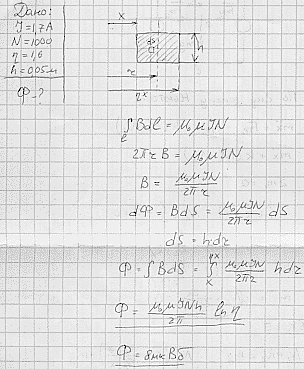 Дано:
J=1,7A
N=1000
η=1,6
h=0,05м
Ф-?
x
dS
h
r
ηx
∫Bdl = μ₀μJN
l
2πr B = μ₀μJN
B = μ₀μJN / 2πr
dФ = BdS = μ₀μJN / 2πr dS
dS = h·dr
Ф = ∫BdS = ∫ₓ^ηx μ₀μJN / 2πr hdr
Ф = μ₀μJNh / 2π ln η
Ф = 8мкВб